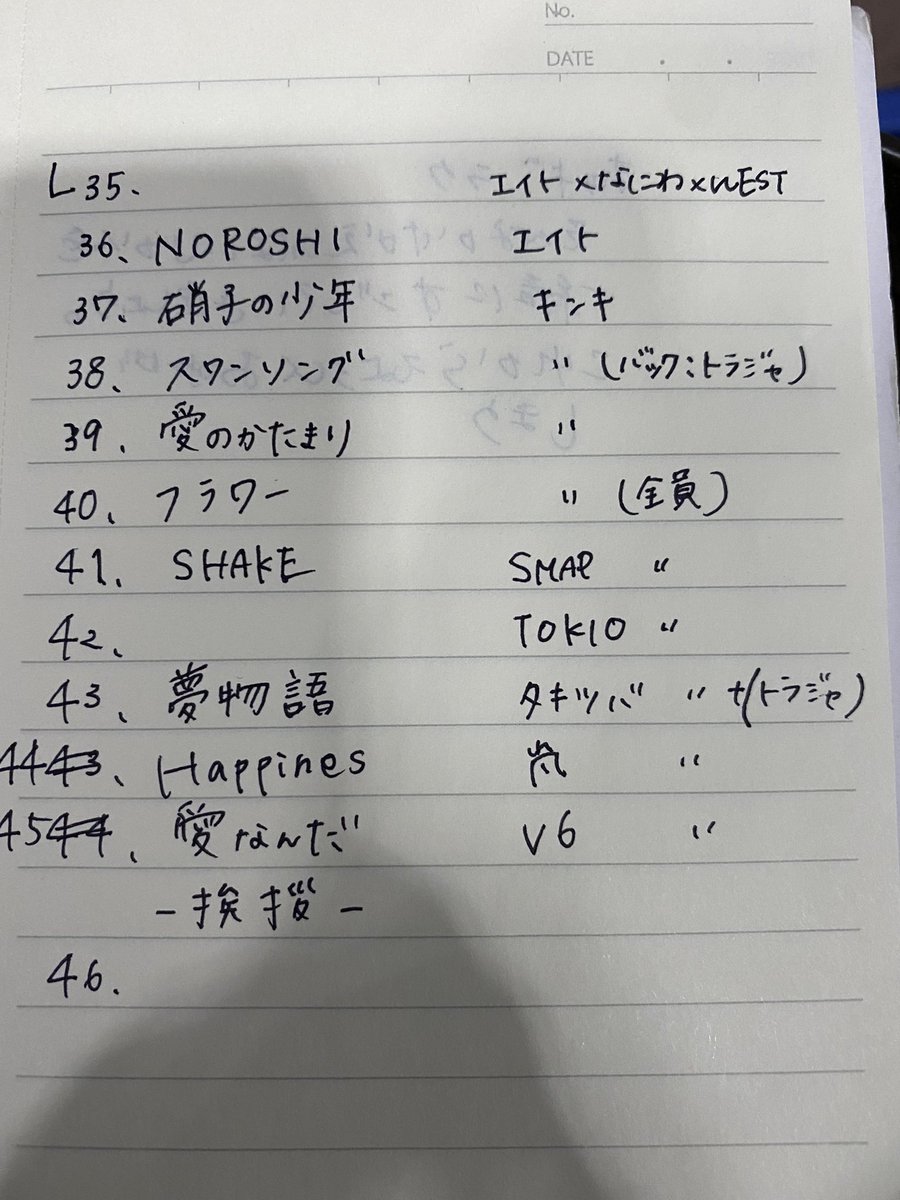 No.
DATE . .
L 35. エイト×なにわ×WEST
36、NOROSHI エイト
37、硝子の少年 キンキ
38、スワンソング 〃 (バック:トラジャ)
39、愛のかたまり 〃
40、フラワー 〃 (全員)
41、SHAKE SMAP 〃
42、 TOKIO 〃
43、夢物語 タキツバ 〃 +(トラジャ)
44 43、Happines 嵐 〃
45 44、愛なんだ V6 〃
-挨拶-
46.